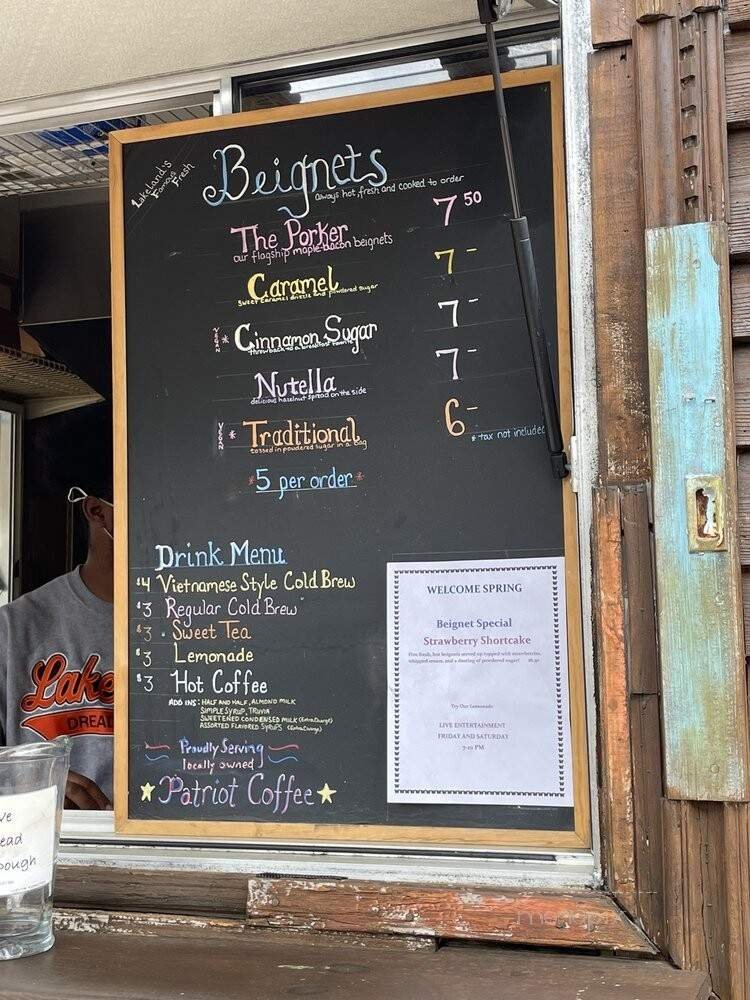 Lakeland's
Famous
Fresh
Beignets
Always hot, fresh and cooked to order
The Porker 7 50
our flagship maple bacon beignets
Caramel 7-
Sweet caramel drizzle and powdered sugar
VEGAN * Cinnamon Sugar 7-
throwback to a breakfast
Nutella 7-
delicious hazelnut spread on the side
VEGAN * Traditional 6-
tossed in powdered sugar in a bag
* tax not included
*5 per order*
Drink Menu
$4 Vietnamese Style Cold Brew
$3 Regular Cold Brew
$3 Sweet Tea
$3 Lemonade
$3 Hot Coffee
ADD INS: HALF AND HALF, ALMOND MILK
SIMPLE SYRUP, TRUVIA
SWEETENED CONDENSED MILK (Extra Charge)
ASSORTED FLAVORED SYRUPS (Extra Charge)
Proudly Serving
locally owned
Patriot Coffee
WELCOME SPRING
Beignet Special
Strawberry Shortcake
Five fresh, hot beignets served up topped with strawberries,
whipped cream, and a dusting of powdered sugar! $8.50
Try Our Lemonade
LIVE ENTERTAINMENT
FRIDAY AND SATURDAY
7-10 PM
Lake
DREAD
ve
ead
ough